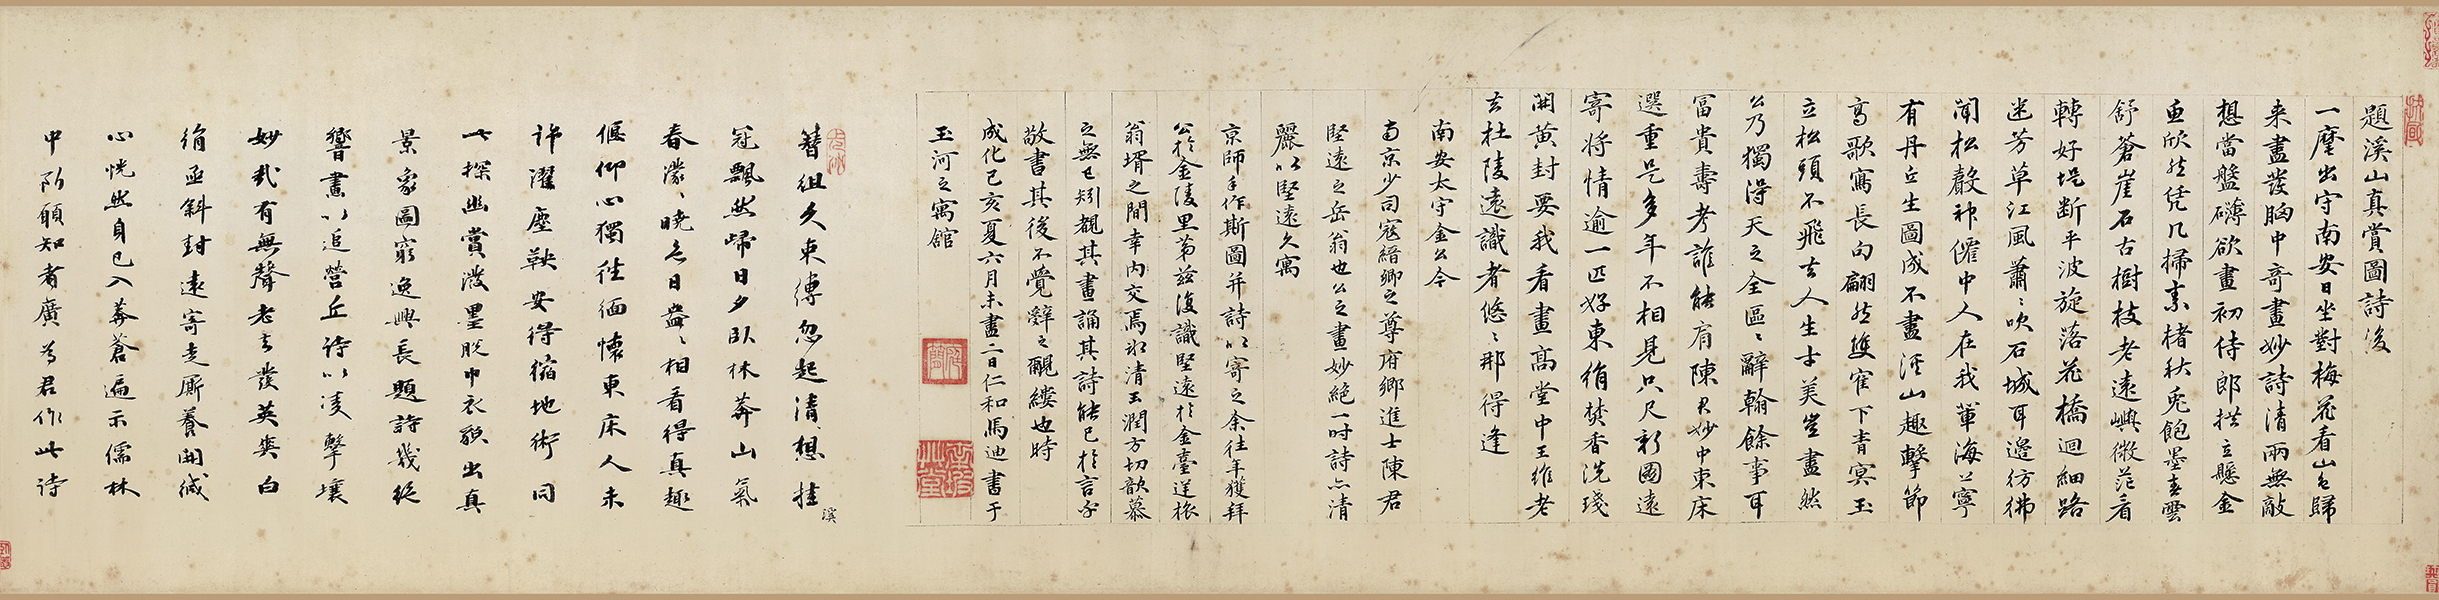 題溪山真賞圖詩後
一麾出守南安日坐對梅花看山色歸
来畫發胸中奇畫妙詩清兩無敵
想當盤礴欲畫初侍郎拱立懸金
魚欣然凭几掃素楮秋兎飽墨玄雲
舒蒼崖石古樹枝老遠嶼微茫看
轉好堤断平波旋落花橋迴細路
迷芳草江風蕭〻吹石城耳邊彷彿
聞松聲神僊中人在我輩海上寧
有丹丘生圖成不盡溪山趣擊節
高歌寫長句翩然雙寉下青冥玉
立松頭不飛去人生十美豈盡然
公乃獨得天之全區〻辭翰餘事耳
冨貴壽考誰能肩陳君妙中東床
選重是多年不相見只尺新圖遠
寄将情逾一匹好東絹焚香洗琖
開黃封要我看畫髙堂中王維老
去杜陵遠識者悠〻那得逢
南安太守金公今
南京少司寇縉卿之尊府鄉進士陳君
堅遠之岳翁也公之畫妙絶一时詩亦清
麗以堅遠久寓
京師手作斯圖并詩以寄之余往年獲拜
公於金陵里第茲復識堅遠於金臺逆旅
翁壻之間幸内交焉氷清玉潤方切歆慕
之無已矧覩其畫誦其詩能已於言乎
敬書其後不覺辭之覼縷也時
成化己亥夏六月未盡二日仁和馬迪書于
玉河之寓舘
簪組久束縛忽起清想挂
溪
冠飄然歸日夕臥林莽山氣
春濛〻曉色日盎〻相看得真趣
偃仰心獨往緬懷東床人未
许濯塵鞅安得縮地術同
此探幽賞潑墨脫巾衣貌出真
景象圖窮逸興長題詩幾絕
響畫以追營丘诗以凌擊壤
妙哉有無聲老去發英爽白
絹亟斜封遠寄走厮養開緘
心恍然自已入莽蒼遍示儒林
中所願知者廣為君作此詩